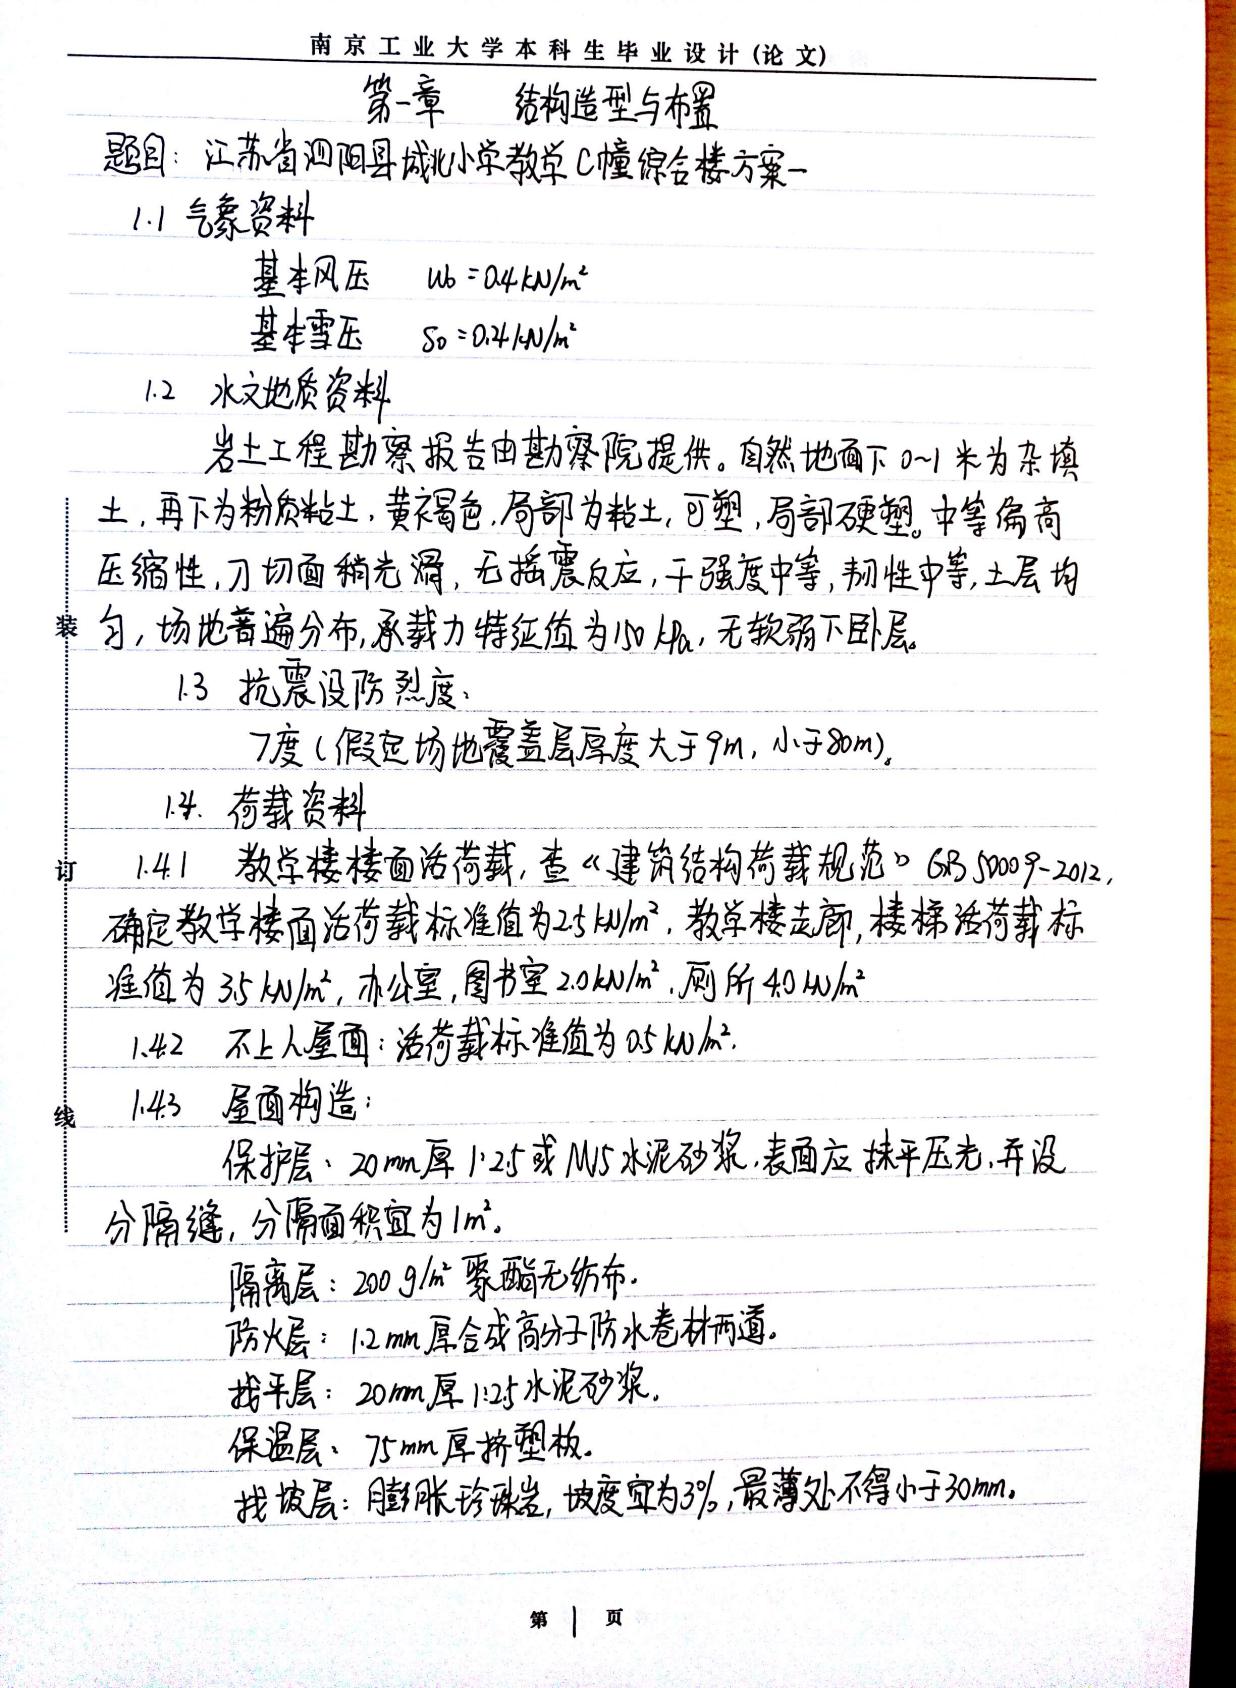 南京工业大学本科生毕业设计(论文)
第一章 结构造型与布置
题目：江苏省泗阳县城北小学教学C幢综合楼方案一
1.1 气象资料
基本风压 W0=0.4kN/m²
基本雪压 S0=0.4kN/m²
1.2 水文地质资料
岩土工程勘察报告由勘察院提供。自然地面下0~1米为杂填
土，再下为粉质粘土，黄褐色，局部为粘土，可塑，局部硬塑。中等偏高
压缩性，刀切面稍光滑，无摇震反应，干强度中等，韧性中等，土层均
匀，场地普遍分布，承载力特征值为150kPa，无软弱下卧层。
1.3 抗震设防烈度：
7度(假定场地覆盖层厚度大于9m，小于80m)。
1.4. 荷载资料
1.4.1 教学楼楼面活荷载，查《建筑结构荷载规范》GB50009-2012，
确定教学楼面活荷载标准值为2.5kN/m²，教学楼走廊，楼梯活荷载标
准值为3.5kN/m²，办公室，图书室2.0kN/m²，厕所4.0kN/m²
1.4.2 不上人屋面：活荷载标准值为0.5kN/m²．
1.4.3 屋面构造：
保护层：20mm厚1:2.5或M15水泥砂浆，表面应抹平压光，并设
分隔缝，分隔面积宜为1m²。
隔离层：200g/m²聚酯无纺布．
防火层：1.2mm厚合成高分子防水卷材两道。
找平层：20mm厚1:2.5水泥砂浆．
保温层：75mm厚挤塑板。
找坡层：膨胀珍珠岩，坡度宜为3%，最薄处不得小于30mm。
装
订
线
第1页